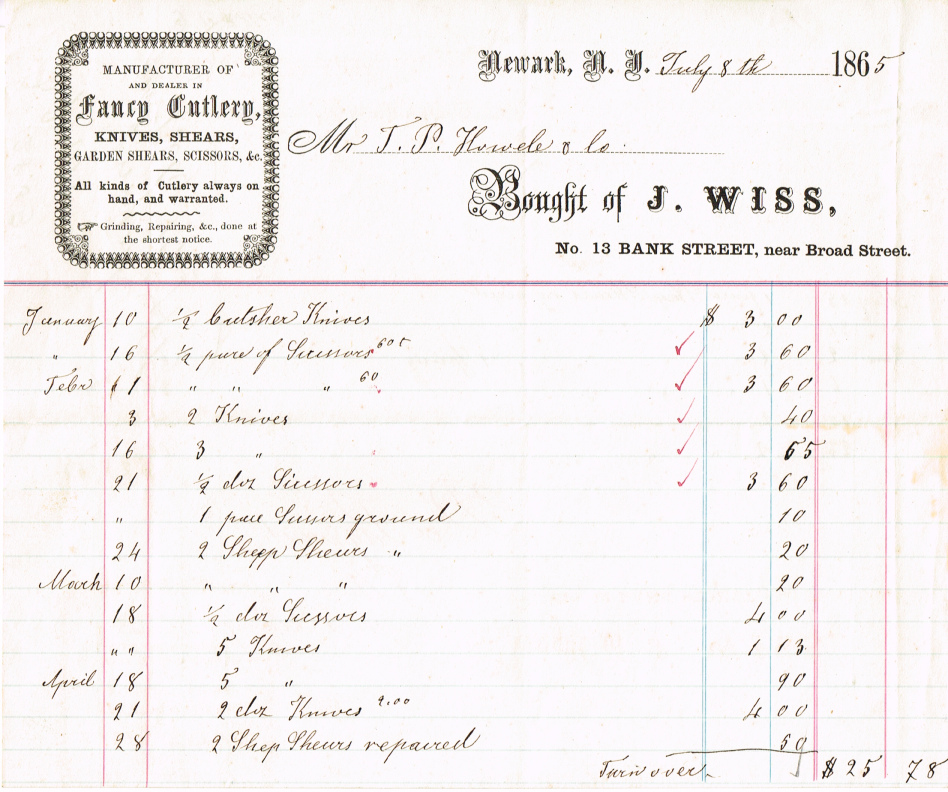 MANUFACTURER OF
AND DEALER IN
Fancy Cutlery,
KNIVES, SHEARS,
GARDEN SHEARS, SCISSORS, &c.
All kinds of Cutlery always on
hand, and warranted.
☞ Grinding, Repairing, &c., done at
the shortest notice.
Newark, N. J. July 8th 1865
Mr T. P. Howele & Co
Bought of J. WISS,
No. 13 BANK STREET, near Broad Street.
January 10 ½ Cutsher Knives $ 3 00
" 16 ½ pare of Scissors 60c 3 60
Febr 1 " " " 60 3 60
3 2 Knives 40
16 3 " 65
21 ½ doz Scissors 3 60
" 1 pare Scissors ground 10
24 2 Sheep Shears " 20
March 10 " " " 20
18 ½ doz Scissors 4 00
" " 5 Knives 1 13
April 18 5 " 90
21 2 doz Knives 2.00 4 00
28 2 Shep Shears repaired 50
Turn over $ 25 78